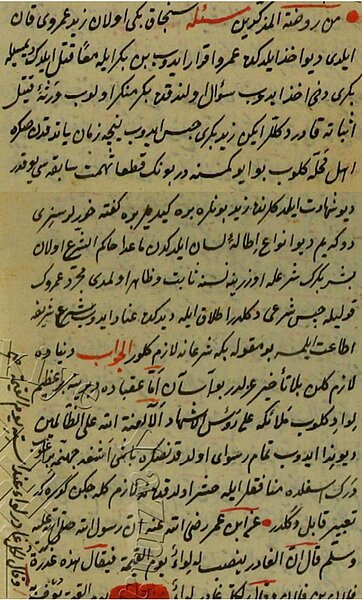 من روضة مسئله سنجاق بكى اولان زيد عمروى قان
ايلدى ديو اخذ ايلدكده عمرو اقرار ايدوب بن بكر ايله معا قتل ايلدك ديمكله
بكرى دخى اخذ ايدوب سؤال اولندقده بكر منكر اولوب ورثۀ قتيل
اثباته قادر دكللر ايكن زيد بكرى حبس ايدوب نيجه زمان ياتدقدن صكره
اهل محله كلوب بو ايو كمسنه در بونك قطعا تهمت سابقه سى يوقدر
ديو شهادت ايلدكلرنده زيد بونلره بره كيديلر بره كفته خورلر سزى
دوكريم ديو انواع اطالۀ لسان ايلدكدن ماعدا حاكم الشرع اولان
بشر بكك شرعله اوزرينه نسنه ثابت و ظاهر اولمدى مجرد عمروك
قوليله حبس شرعى دكلدر اطلاق ايله ديدكده عناد ايدوب شرع شريفه
اطاعت ايلمسه بو مقوله بكه شرعا نه لازم كلور الجواب دنياده
لازم كلن بلا تأخير عزلدر بو آسان اما عقباده
ملائكه على رؤس الاشهاد الا لعنة الله على الظالمين
ديو ندا ايدوب تمام رسواى اولدقدنصكره
درك اسفلده منافقلر ايله حشر اولدقده نه لازم كله جكن كوره كه
تعبير قابل دكلدر عن ابن عمر رضى الله عنه ان رسول الله صلى الله عليه
وسلم قال ان الغادر ينصب له لواء يوم القيمة فيقال هذه غدرة
فلان بن فلان